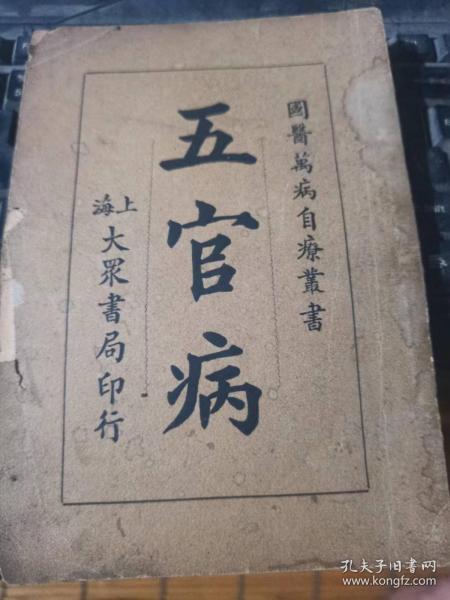 國醫萬病自療叢書
五官病
上海大眾書局印行
孔夫子旧书网
www.kongfz.com